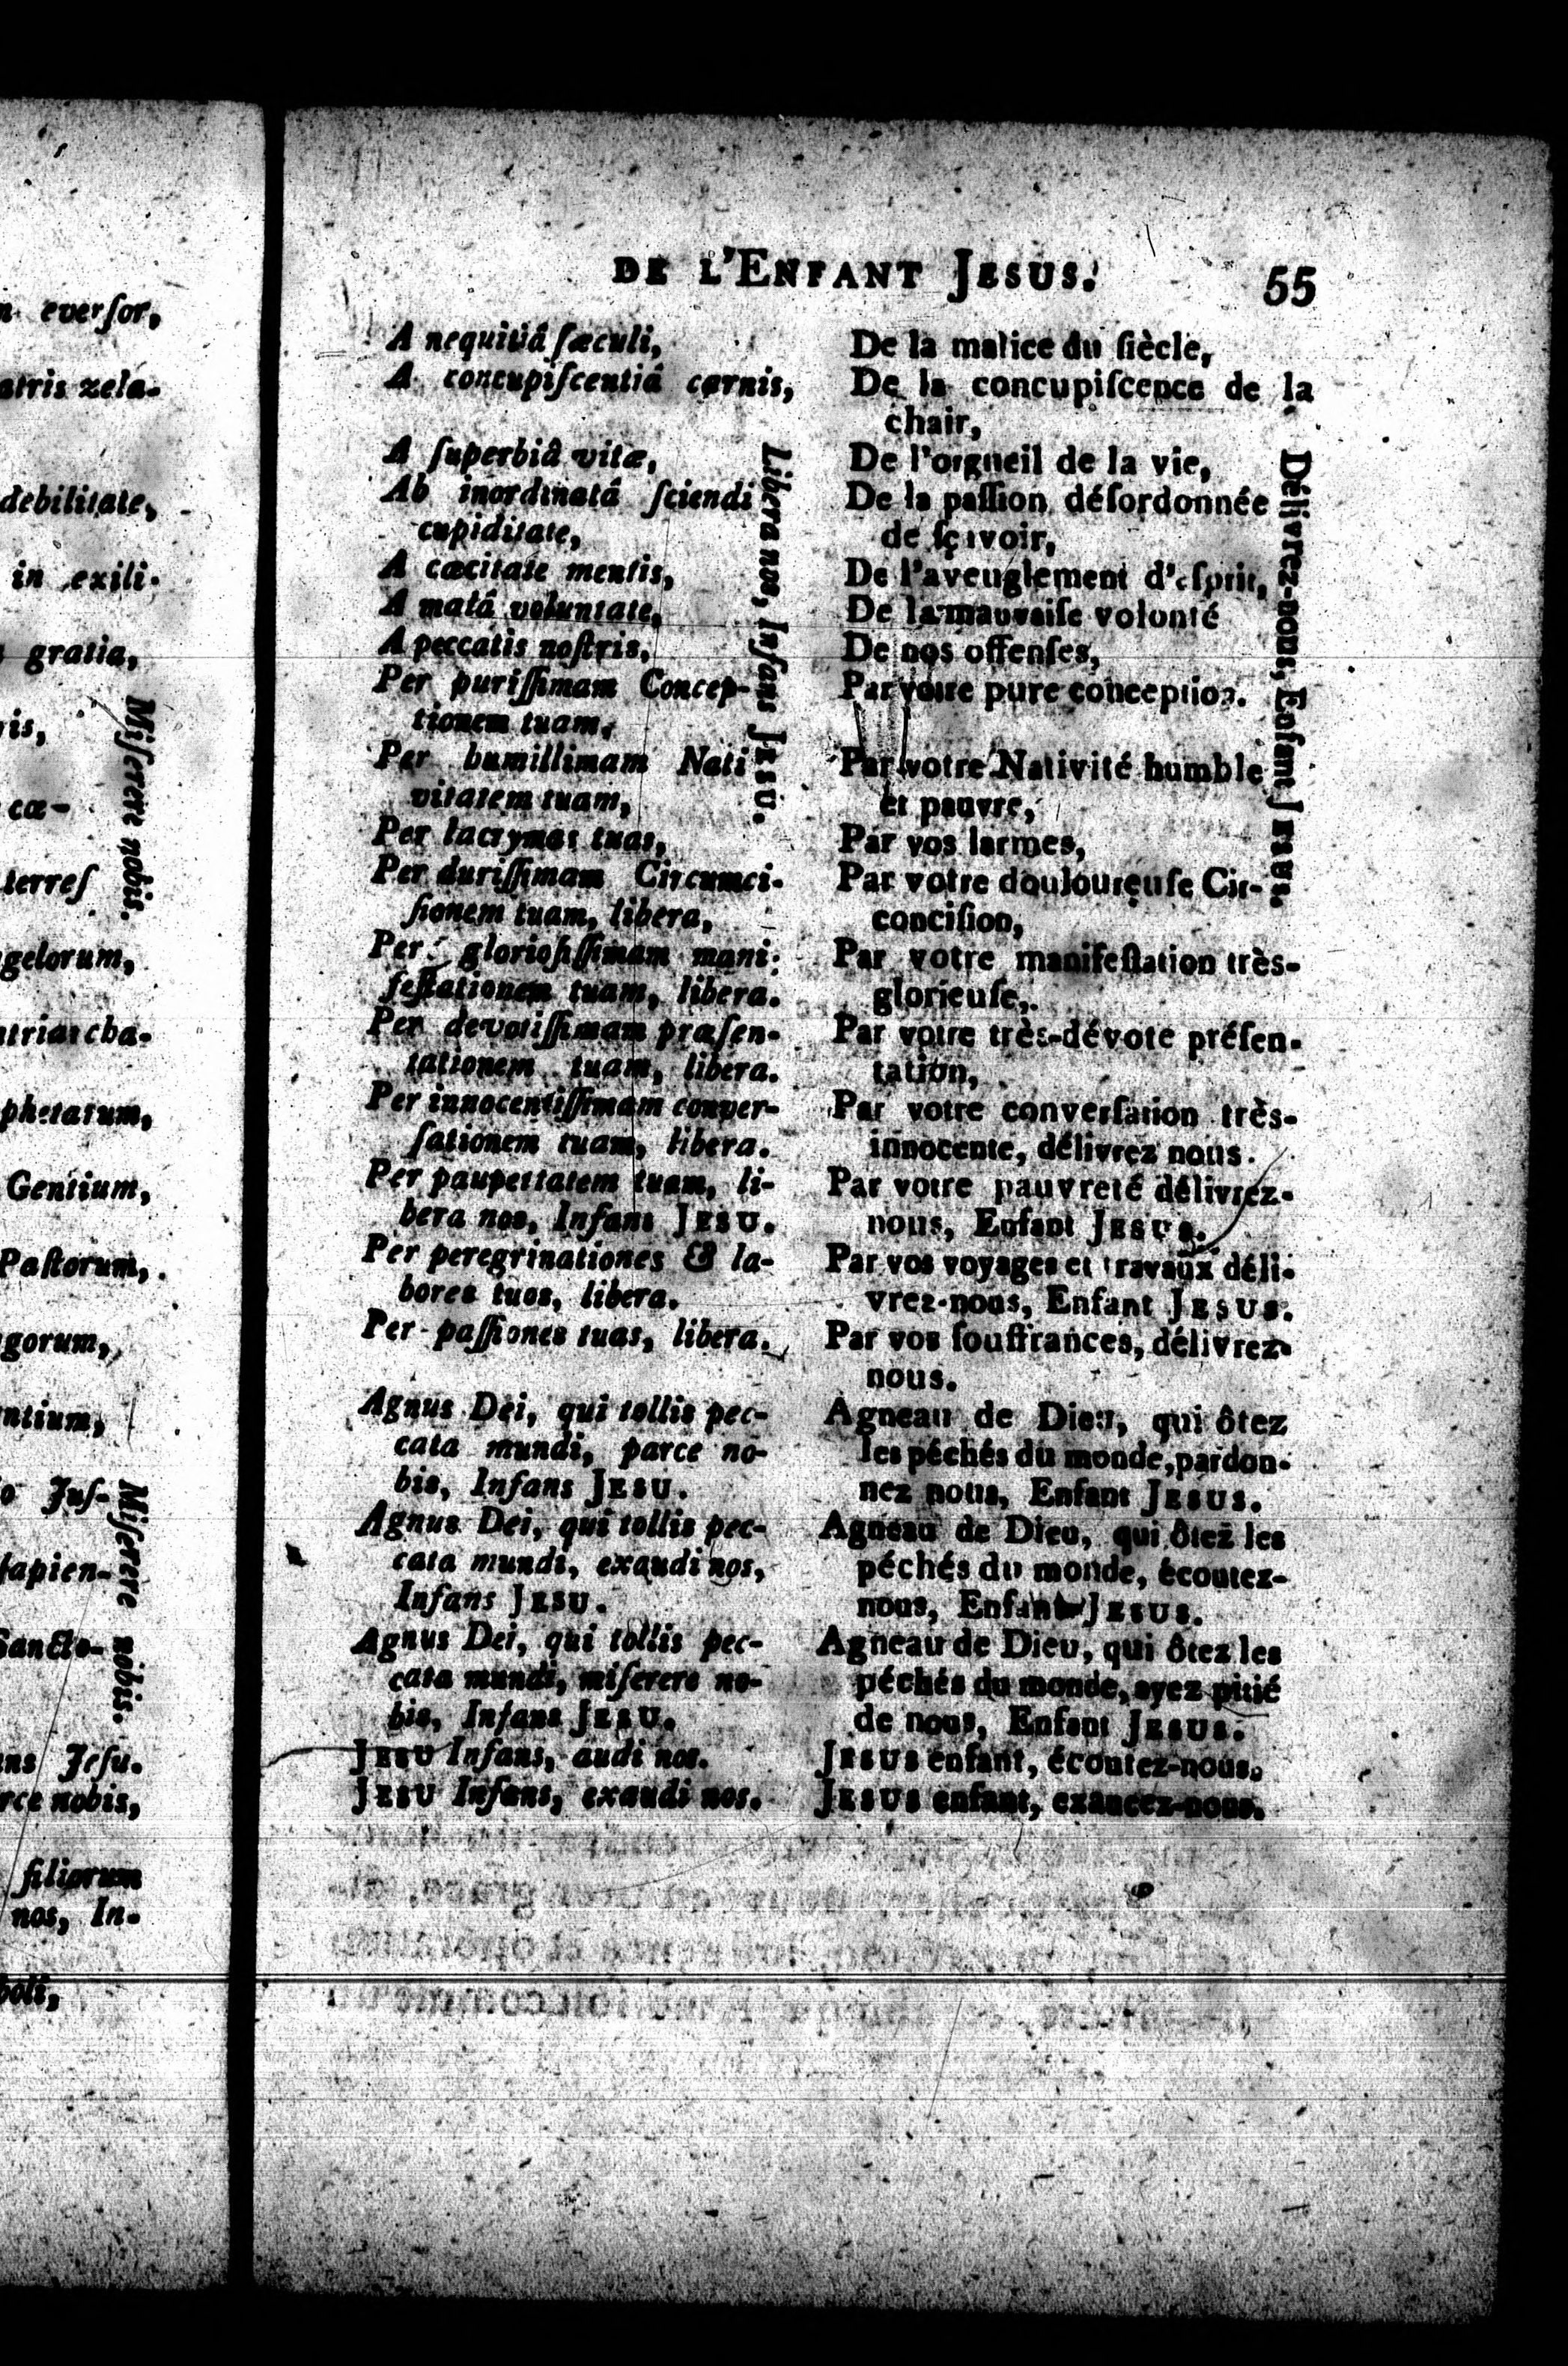 n everſor,
atris zela-
debilitate,
in exili-
gratia,
ris,
cœ-
terreſ
gelorum,
atriarcha-
phetarum,
Gentium,
Paſtorum,
gorum,
ntium,
o Juſ-
ſapien-
Sancto-
ns Jeſu.
rce nobis,
filiorum
nos, In-
boli,
Miſerere nobis.
Miſerere nobis.
DE L'ENFANT JESUS. 55
A nequitiâ ſæculi,
A concupiſcentiâ carnis,
A ſuperbiâ vitæ,
Ab inordinatâ ſciendi
cupiditate,
A cæcitate mentis,
A malâ voluntate,
A peccatis noſtris,
Per puriſſimam Concep-
tionem tuam,
Per humillimam Nati
vitatem tuam,
Per lacrymas tuas,
Per duriſſimam Circumci-
ſionem tuam, libera,
Per glorioſiſſimam mani-
feſtationem tuam, libera.
Per devotiſſimam præſen-
tationem tuam, libera.
Per innocentiſſimam conver-
ſationem tuam, libera.
Per paupertatem tuam, li-
bera nos, Infans JESU.
Per peregrinationes & la-
bores tuos, libera.
Per paſſiones tuas, libera.
Agnus Dei, qui tollis pec-
cata mundi, parce no-
bis, Infans JESU.
Agnus Dei, qui tollis pec-
cata mundi, exaudi nos,
Infans JESU.
Agnus Dei, qui tollis pec-
cata mundi, miſerere no-
bis, Infans JESU.
JESU Infans, audi nos.
JESU Infans, exaudi nos.
Libera nos, Infans JESU.
De la malice du ſiècle,
De la concupiſcence de la
chair,
De l'orgueil de la vie,
De la paſſion déſordonnée
de ſçavoir,
De l'aveuglement d'eſprit,
De la mauvaiſe volonté
De nos offenſes,
Par votre pure conception.
Par votre Nativité humble
et pauvre,
Par vos larmes,
Par votre douloureuſe Cir-
conciſion,
Par votre manifeſtation très-
glorieuſe,
Par votre très-dévote préſen-
tation,
Par votre converſation très-
innocente, délivrez nous.
Par votre pauvreté délivrez-
nous, Enfant JESUS.
Par vos voyages et travaux déli-
vrez-nous, Enfant JESUS.
Par vos ſouffrances, délivrez-
nous.
Agneau de Dieu, qui ôtez
les péchés du monde, pardon-
nez nous, Enfant JESUS.
Agneau de Dieu, qui ôtez les
péchés du monde, écoutez-
nous, Enfant JESUS.
Agneau de Dieu, qui ôtez les
péchés du monde, ayez pitié
de nous, Enfant JESUS.
JESUS enfant, écoutez-nous.
JESUS enfant, exaucez-nous.
Délivrez-nous, Enfant JESUS.